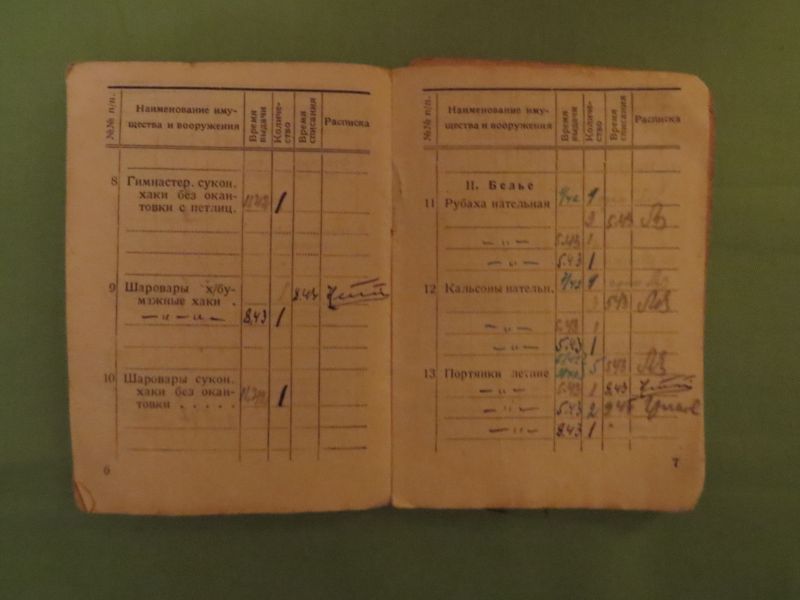 №№ п/п. Наименование иму-щества и вооружения Время выдачи Количе-ство Время списания Расписка
8 Гимнастер. сукон.
хаки без окан-
товки с петлиц. 1
9 Шаровары х/бу-
мажные хаки . 8.43
— „ — „ — 8.43 1
10 Шаровары сукон.
хаки без окан-
товки . . . . . 1
6
№№ п/п. Наименование иму-щества и вооружения Время выдачи Количе-ство Время списания Расписка
II. Белье
11 Рубаха нательная
2 5.43
— „ — 5.43 1
— „ — 5.43 1
12 Кальсоны нательн.
543
— „ — 5.43 1
— „ — 5.43 1
13 Портянки летние 5 543
— „ — 5.43 1 8.43
— „ — 5.43 2
— „ — 8.43 1
7